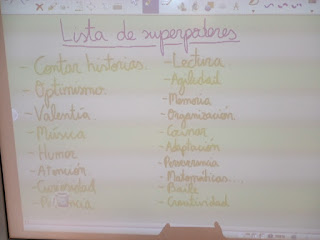 Lista de superpoderes
- Contar historias.
- Optimismo.
- Valentía.
- Música
- Humor
- Atención
- Curiosidad
- Lectura
- Agilidad
- Memoria
- Organización
- Cocinar
- Adaptación
- Perseverancia
- Matemáticas...
- Baile
- Creatividad